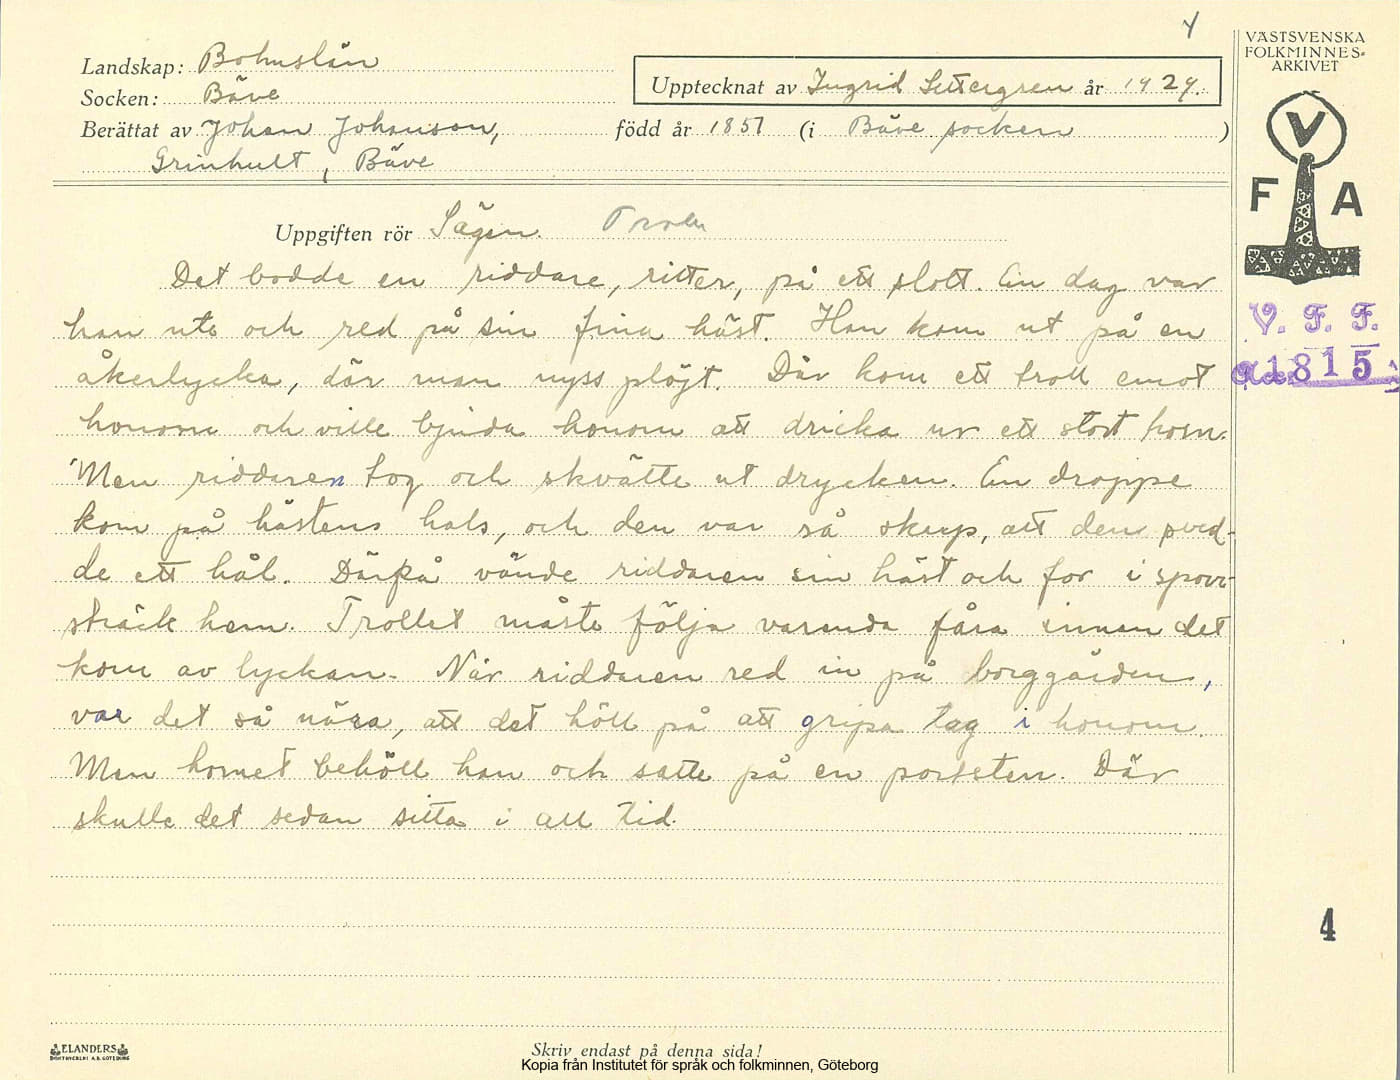 4
VÄSTSVENSKA
FOLKMINNES-
ARKIVET
Landskap: Bohuslän
Socken: Bäve
Upptecknat av Ingrid Settergren år 1929.
Berättat av Johan Johanson, född år 1857 (i Bäve socken )
Grinhult, Bäve
V
F A
Uppgiften rör Sägen. Troll
Det bodde en riddare, ritter, på ett slott. En dag var
han ute och red på sin fina häst. Han kom ut på en
åkerlycka, där man nyss plöjt. Där kom ett troll emot
honom och ville bjuda honom att dricka ur ett stort horn.
Men riddaren tog och skvätte ut drycken. En droppe
kom på hästens hals, och den var så skarp, att den sved-
de ett hål. Därpå vände riddaren sin häst och for i sporr-
sträck hem. Trollet måste följa varenda fåra innan det
kom av lyckan. När riddaren red in på borggården,
var det så nära, att det höll på att gripa tag i honom.
Men hornet behöll han och satte på en portsten. Där
skulle det sedan sitta i all tid.
V. F. F.
1815
4
ELANDERS
BOKTRYCKERI A.B. GÖTEBORG
Skriv endast på denna sida!
Kopia från Institutet för språk och folkminnen, Göteborg